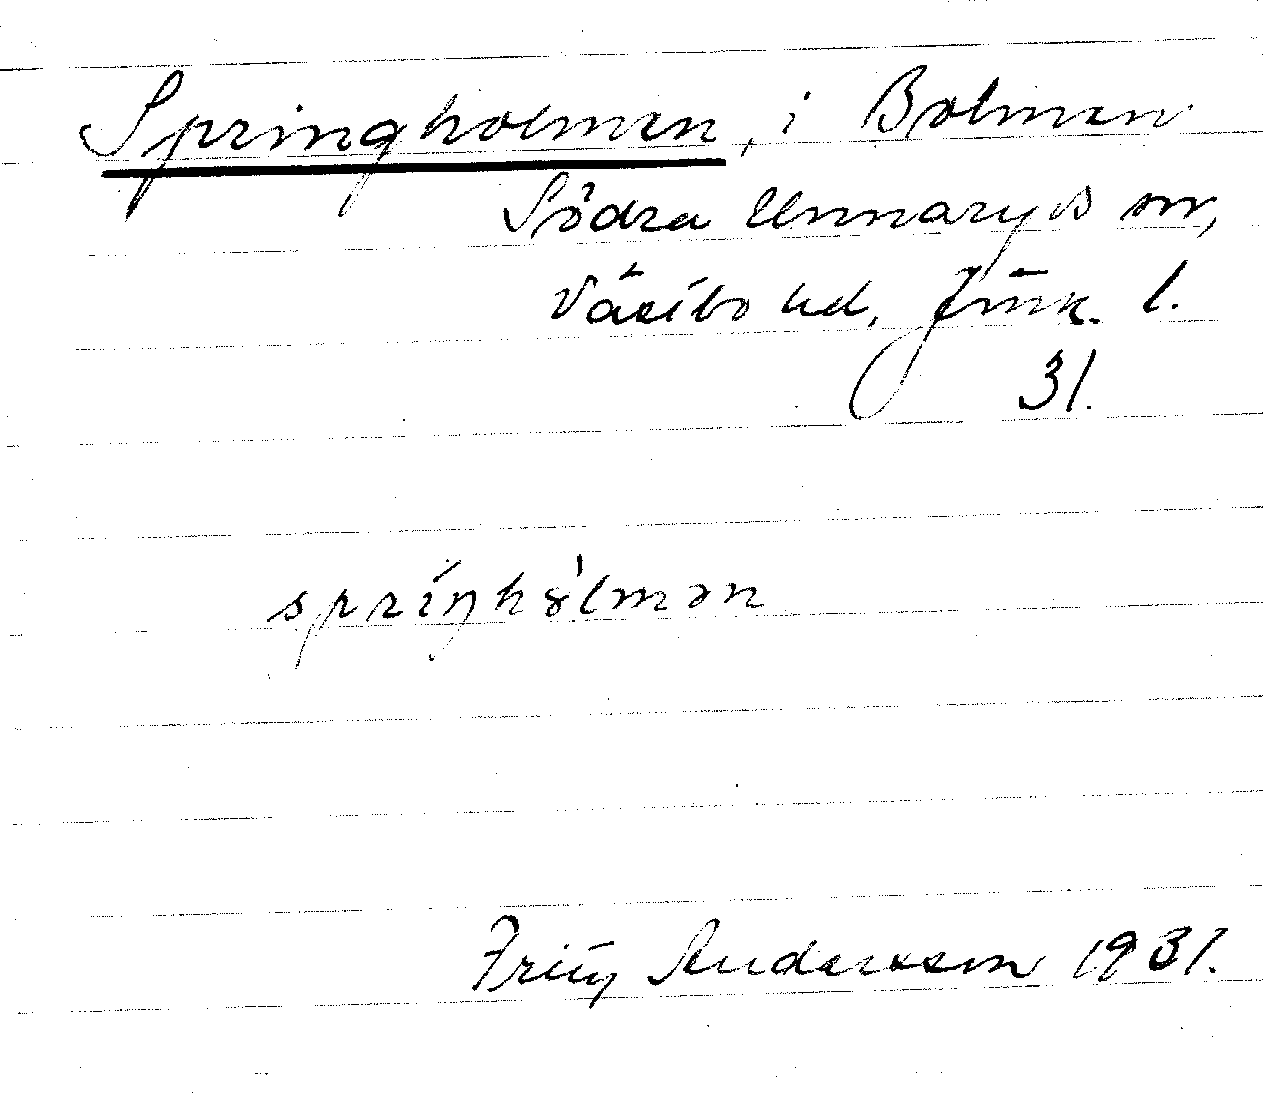 Springholmen, i Bolmen
Södra Unnaryds sn,
Västbo hd, Jönk. l.
31.
spríŋhòlmən
Fritz Andersson 1931.